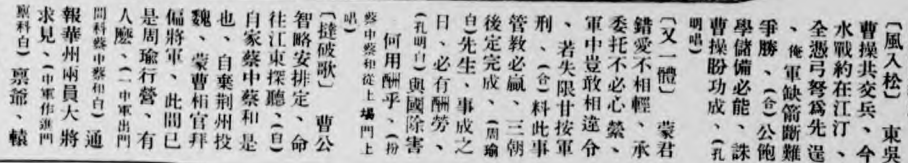 〔風入松〕　東吳
曹操共交兵、今
水戰約在江汀、
全憑弓弩爲先逞
、俺軍缺箭斷難
爭勝、（合）公飽
學儲備必能、誅
曹操勝功成、（孔
明唱）
〔又一體〕　蒙君
錯愛不相輕、承
委托不必心縈、
軍中豈敢相違令
、若失限甘按軍
刑、（合）料此事
管敎必贏、三朝
後定完成、（周瑜
白）先生、事成之
日、必有酬勞、
（孔明白）與國除害
、何用酬乎、（扮
蔡中蔡和從上場門上
唱）
〔撻破歌〕　曹公
智略安排定、命
往江東探聽、（白）
自家蔡中蔡和是
也、自棄荆州投
魏、蒙曹相官拜
偏將軍、此間已
是周瑜行營、有
人麽、（中軍出門
問科蔡中蔡和白）通
報華州兩員大將
求見、（中軍作進門
禀科白）禀爺、轅